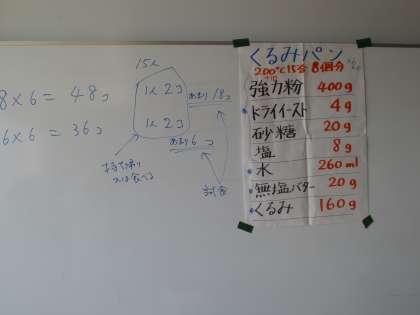 8×6 = 48コ
6×6 = 36コ
15人
1人 2コ
あまり18コ
1人 2コ
あまり6コ
持ち帰り
試食
くるみパン
200℃15分 8個分
強力粉 400g
ドライイースト 4g
砂糖 20g
塩 8g
水 260ml
無塩バター 20g
くるみ 160g